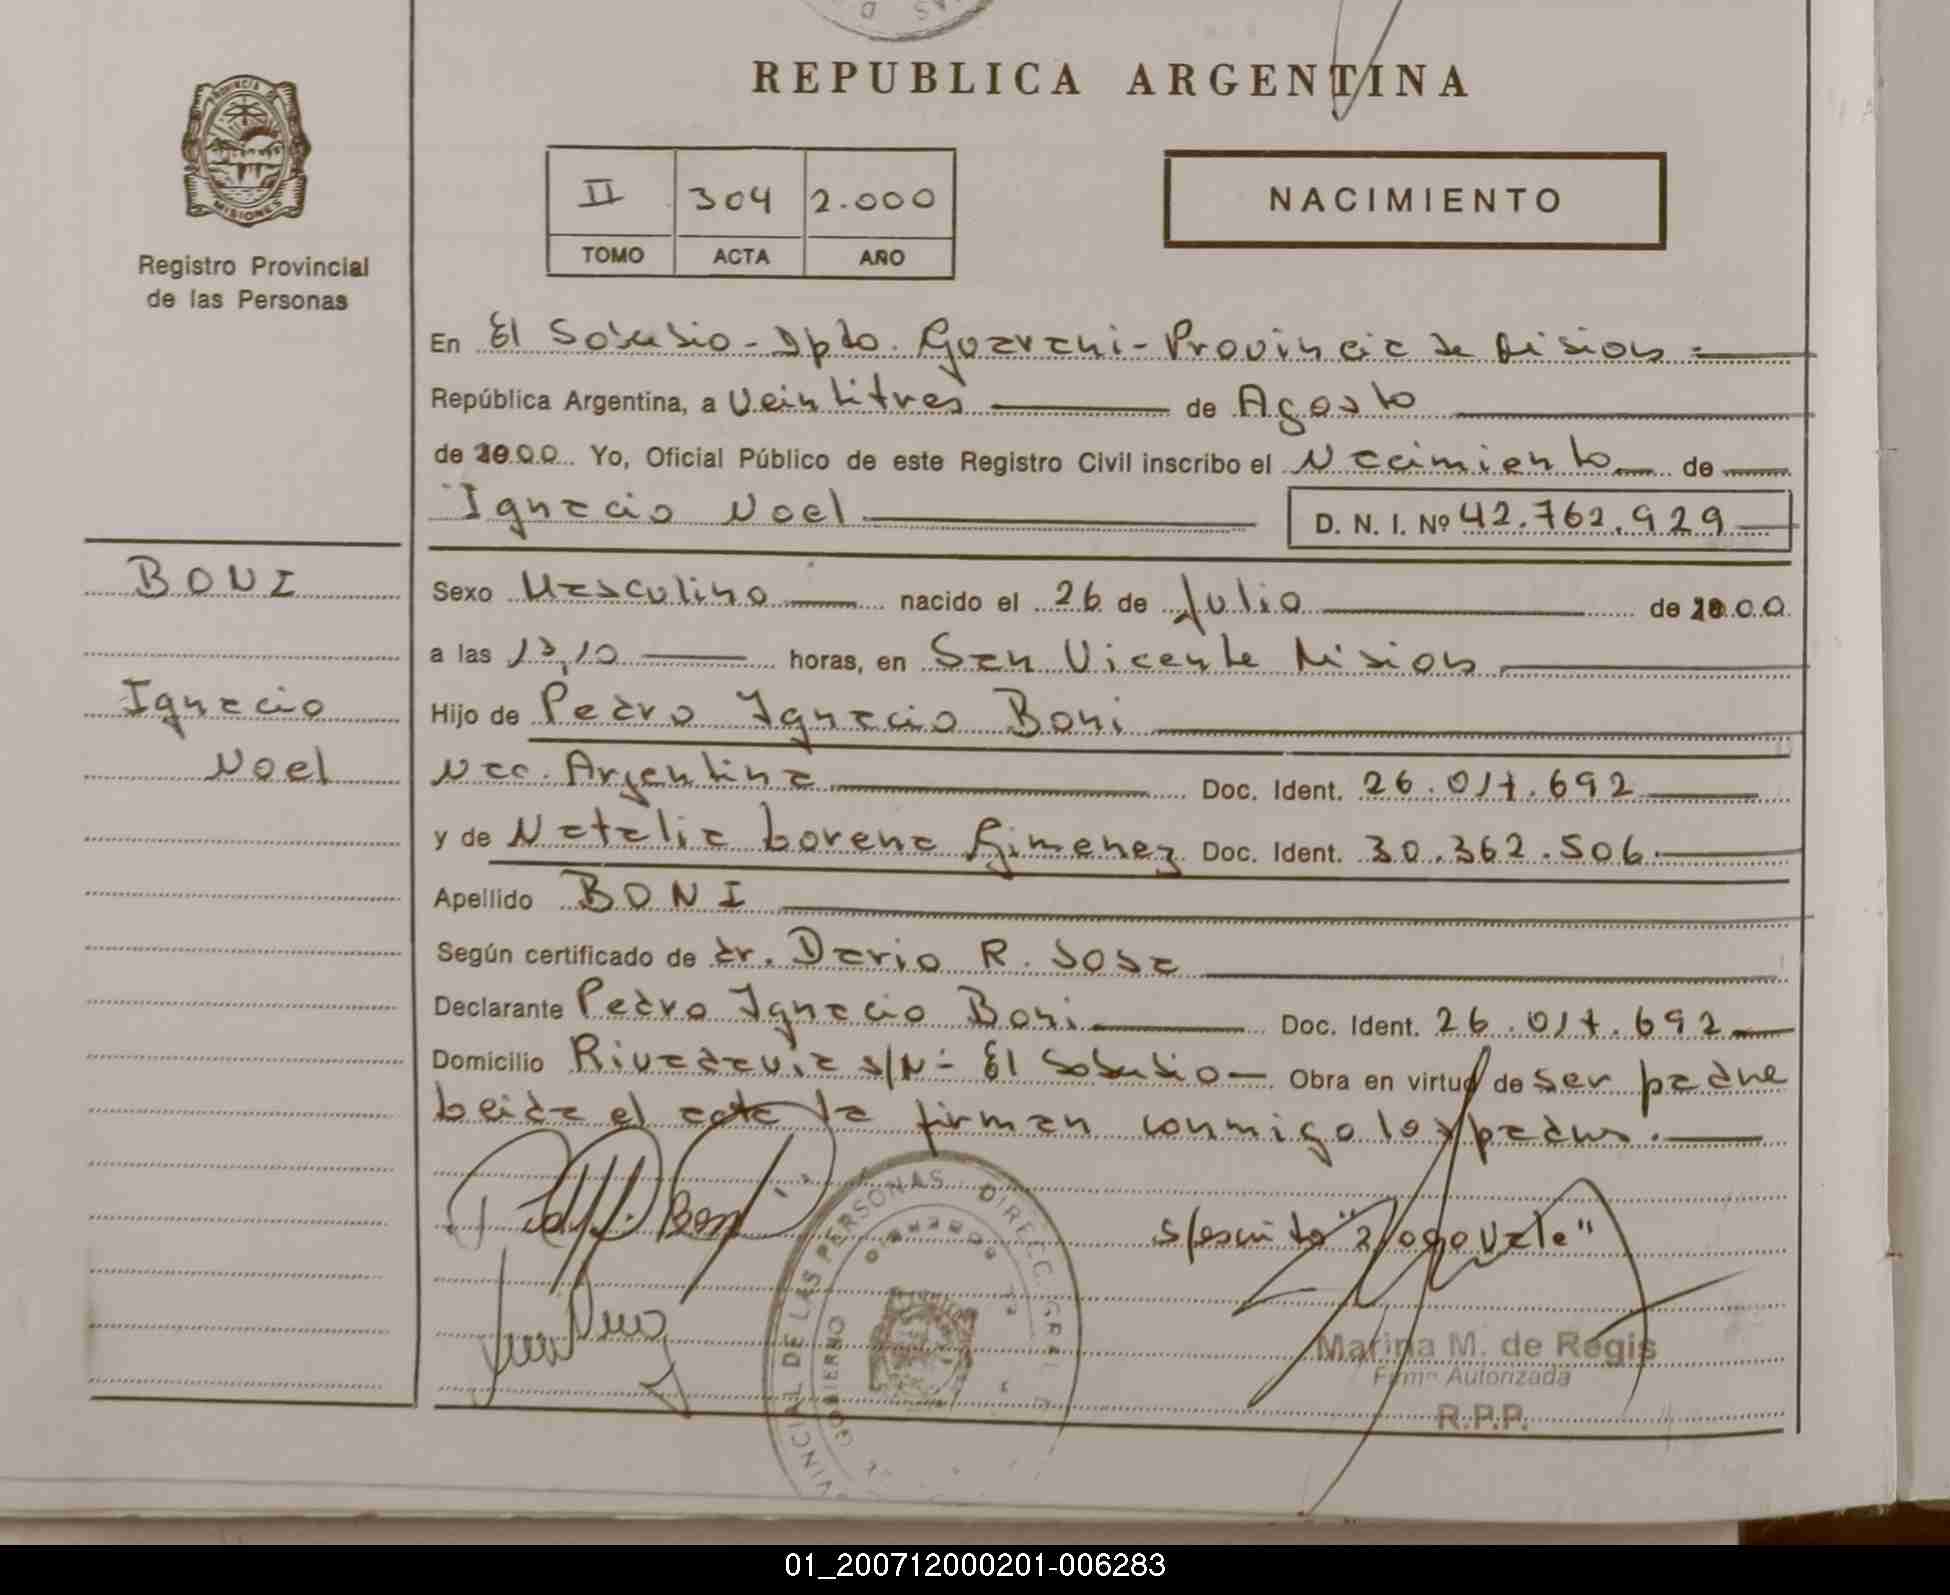 REPUBLICA ARGENTINA
PROVINCIA DE
MISIONES
Registro Provincial
de las Personas
II 304 2.000
TOMO ACTA AÑO
NACIMIENTO
En El Soberbio - Dpto. Guarani - Provincia de Misiones
República Argentina, a Veintitres de Agosto
de 2000 Yo, Oficial Público de este Registro Civil inscribo el Nacimiento de
Ignacio Noel D. N. I. Nº 42.762.929
BONI
Ignacio
Noel
Sexo Masculino nacido el 26 de Julio de 2000
a las 13,10 horas, en San Vicente Misiones
Hijo de Pedro Ignacio Boni
Nac. Argentina Doc. Ident. 26.017.692
y de Natalia Lorena Gimenez Doc. Ident. 30.362.506
Apellido BONI
Según certificado de dr. Dario R. Sosa
Declarante Pedro Ignacio Boni Doc. Ident. 26.017.692
Domicilio Rivadavia s/Nº El Soberbio Obra en virtud de ser padre
Leida el acta la firman conmigo los padres.
s/escrito "2/000 Vale"
PERSONAS DIRECC. GRAL
VINCIAL DE LAS
GOBIERNO
Marina M. de Regis
Firma Autorizada
R.P.P.
01_200712000201-006283